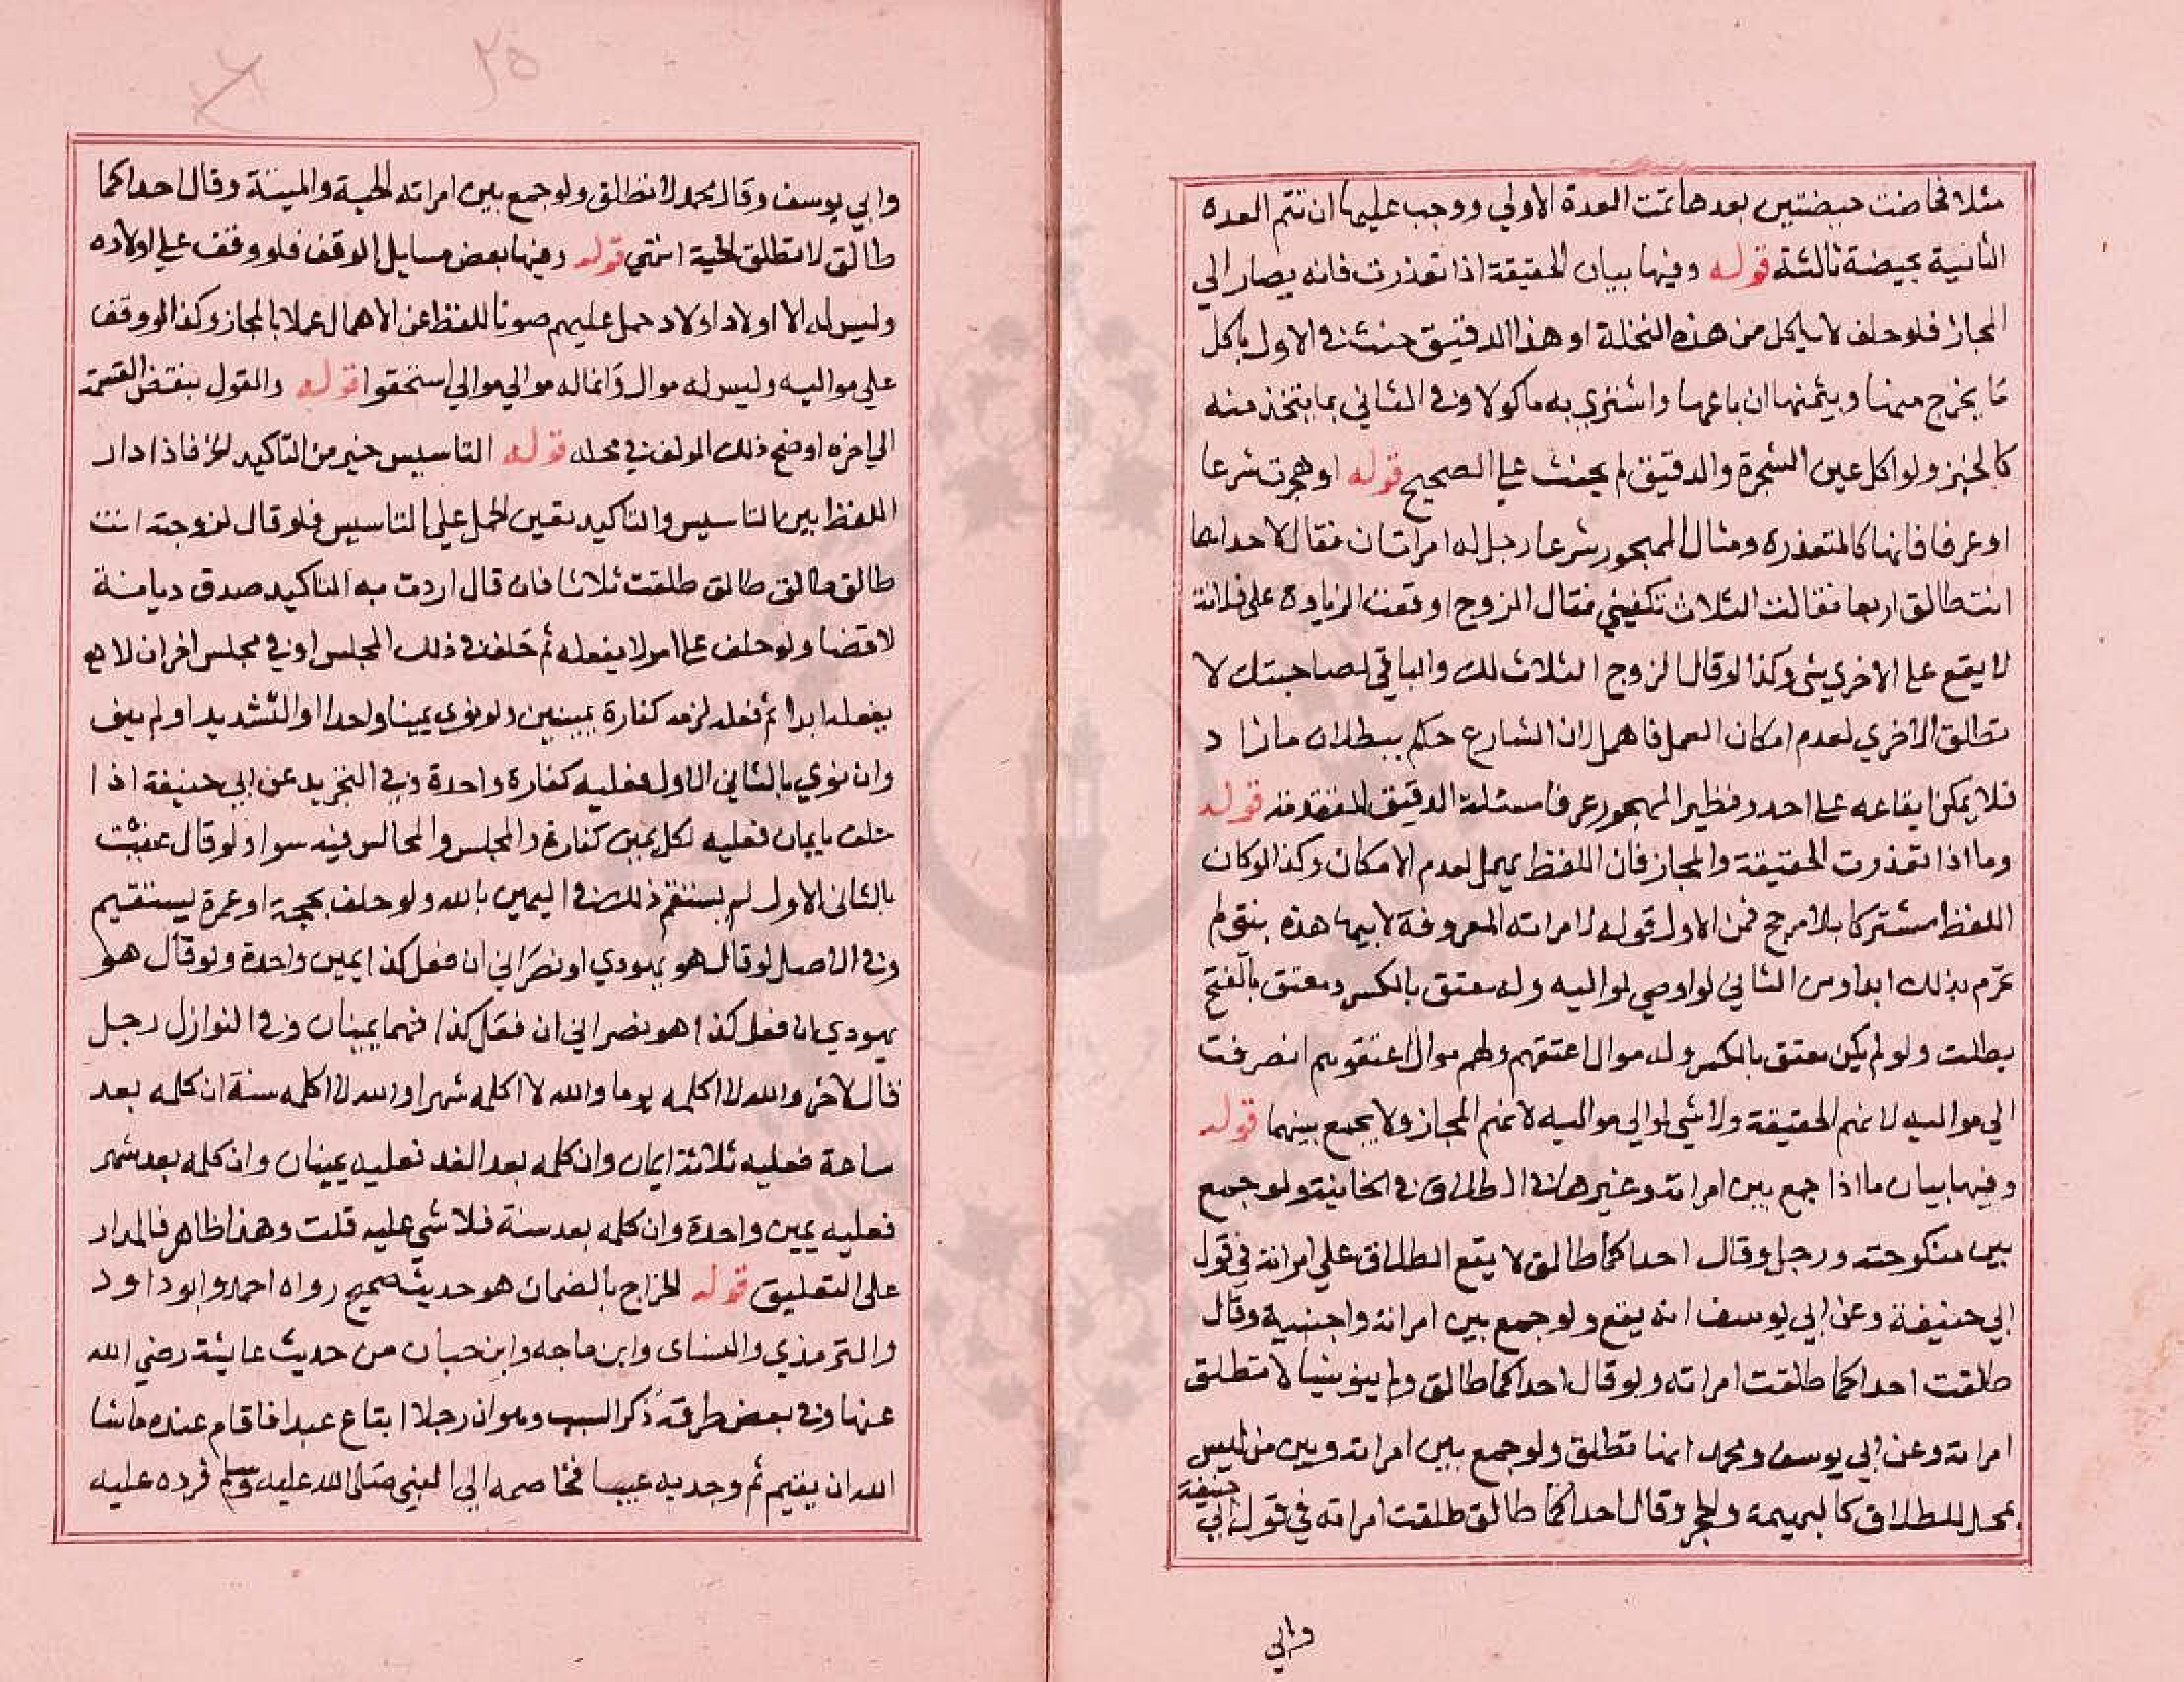 مثلا فحاضت حيضتين بعدها تمت العدة الاولي ووجب عليها ان تتم العده
الثانية بحيضة ثالثة قوله وفيها بيان الحقيقة اذا تعذرت فانه يصار الي
المجاز فلو حلف لا ياكل من هذه النخلة او هذا الدقيق حنث في الاول باكل
ما يخرج منها وبثمنها ان باعها واشتري به ماكولا وفي الثاني بما يتخذ منه
كالخبز ولو اكل عين الشجرة والدقيق لم يحنث علي الصحيح قوله او هجرت شرعا
او عرفا فانها كالمتعذره ومثال المهجور شرعا رجل له امراتان فقال لاحداهما
انت طالق اربعا فقالت الثلاث تكفيني فقال الزوج اوقعت الزيادة علي فلانة
لا يقع علي الاخري شي وكذا لو قال الزوج الثلاث لك والباقي لصاحبتك لا
تطلق الاخري لعدم امكان العمل فاهمل لان الشارع حكم ببطلان ما زا د
فلا يمكن ايقاعه علي احد ونظير المهجور عرفا مسئلة الدقيق المتقدمة قوله
وما اذا تعذرت الحقيقة والمجاز فان اللفظ يهمل لعدم الامكان وكذا لو كان
اللفظ مشتركا بلا مرجح فمن الاول قوله لامراته المعروفة لابيها هذه بنتي لم
تحرم بذلك ابدا ومن الثاني لو اوصي لمواليه وله معتق بالكسر ومعتق بالفتح
بطلت ولو لم يكن معتق بالكسر وله موال اعتقهم ولهم موال اعتقوهم انصرفت
الي مواليه لانهم الحقيقة ولا شي لموالي مواليه لانهم المجاز ولا يجمع بينهما قوله
وفيها بيان ما اذا جمع بين امراته وغيرها في الطلاق في الخانية ولو جمع
بين منكوحته ورجل وقال احداكما طالق لا يقع الطلاق علي امراته في قول
ابي حنيفة وعن ابي يوسف انه يقع ولو جمع بين امراته واجنبية وقال
طلقت احداكما طلقت امراته ولو قال احداكما طالق ولم ينو شيا لا تطلق
امراته وعن ابي يوسف ومحمد انها تطلق ولو جمع بين امراته وبين من ليس
بمحل للطلاق كالبهيمة والحجر وقال احداكما طالق طلقت امراته في قول ابي حنيفة
وابي
وابي يوسف وقال محمد لا تطلق ولو جمع بين امراته الحية والميتة وقال احداكما
طالق لا تطلق الحية انتهي قوله وفيها بعض مسايل الوقف فلو وقف علي اولاده
وليس له الا اولاد اولاد حمل عليهم صونا للفظ عن الاهمال عملا بالمجاز وكذا لو وقف
علي مواليه وليس له موال وانما له موالي موالي استحقوا قوله والقول بنقض القسمة
الي اخره اوضح ذلك المولف في محله قوله التاسيس خير من التاكيد الخ فاذا دار
اللفظ بين التاسيس والتاكيد تعين الحمل علي التاسيس فلو قال لزوجته انت
طالق طالق طالق طلقت ثلاثا فان قال اردت به التاكيد صدق ديانة
لا قضا ولو حلف علي امر لا يفعله ثم حلف في ذلك المجلس او في مجلس اخر ان لا
يفعله ابدا ثم فعله لزمه كفارة يمينين ولو نوي يمينا واحدا او التشديد او لم ينو
وان نوي بالثاني الاول فعليه كفارة واحدة وفي التجريد عن ابي حنيفة اذا
حلف بايمان فعليه لكل يمين كفارة والمجلس والمجالس فيه سوا ولو قال عنيت
بالثاني الاول لم يستقم ذلك في اليمين بالله ولو حلف بحجة او عمرة يستقيم
وفي الاصل لو قال هو يهودي او نصراني ان فعل كذا يمين واحدة ولو قال هو
يهودي ان فعل كذا هو نصراني ان فعل كذا فهما يمينان وفي النوازل رجل
قال لاخر والله لا اكلمه يوما والله لا اكلمه شهرا والله لا اكلمه سنة ان كلمه بعد
ساعة فعليه ثلاثة ايمان وان كلمه بعد الغد فعليه يمينان وان كلمه بعد شهر
فعليه يمين واحدة وان كلمه بعد سنة فلا شي عليه قلت وهذا ظاهر فالمدار
علي التعليق قوله الخراج بالضمان هو حديث صحيح رواه احمد وابو داود
والترمذي والنساي وابن ماجه وابن حبان من حديث عايشة رضي الله
عنها وفي بعض طرقه ذكر السبب وهو ان رجلا ابتاع عبدا فاقام عنده ما شا
الله ان يقيم ثم وجد به عيبا فخاصمه الي النبي صلي الله عليه وسلم فرده عليه